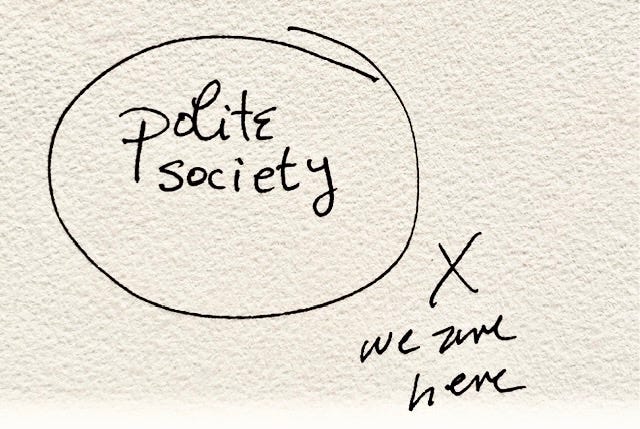 polite
society
X
we are
here